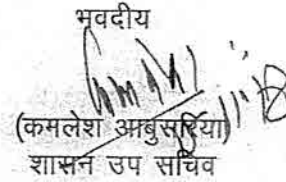 भवदीय
(कमलेश आबुसरिया)
शासन उप सचिव